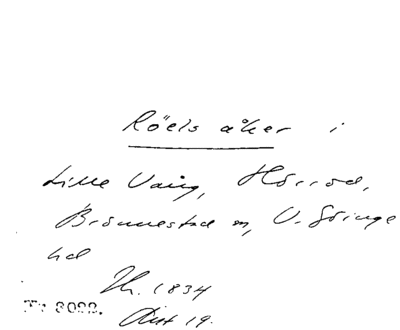 Röels åker i
Lille Vång, Hörröd,
Brönnestad sn, V. Göinge
hd
Th. 1834
Akt 19.